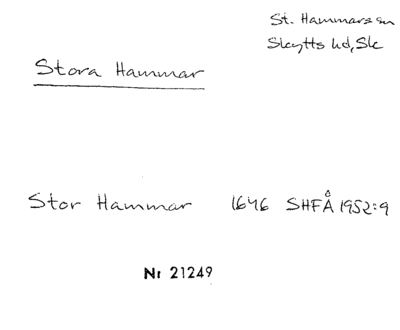 St. Hammars sn
Skytts hd, Sk
Stora Hammar
Stor Hammar 1646 SHFÅ 1952:9
Nr 21249